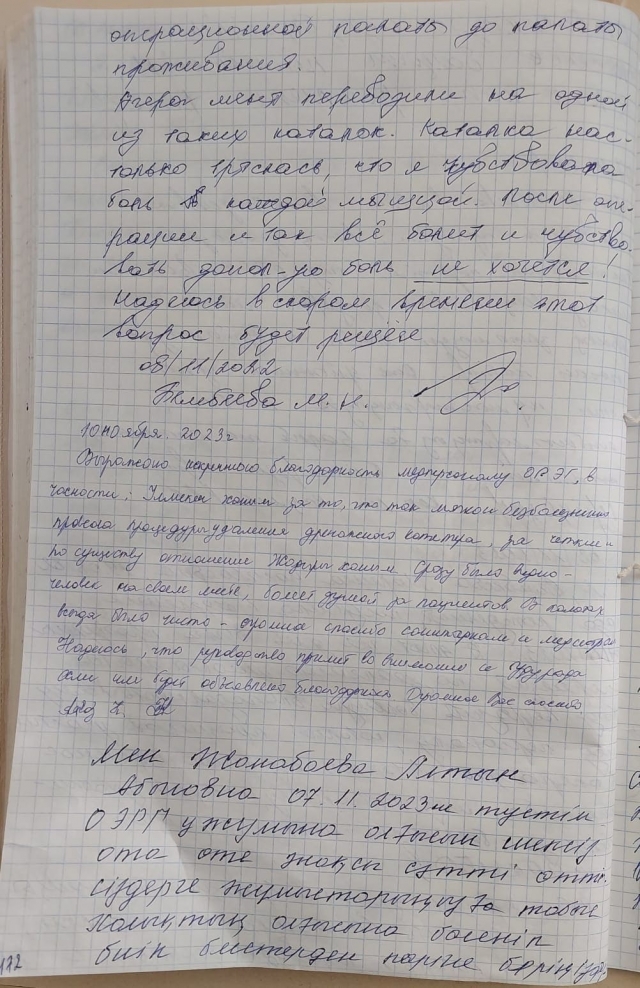 операционной палаты до палаты
проживания.
Вчера меня переводили на одной
из таких каталок. Каталка нас-
только тряслась, что я чувствовала
боль каждой мышцой. После опе-
рации и так всё болит и чувство-
вать допол-ую боль не хочется!
Надеюсь в скором времени этот
вопрос будет решён
08/11/2022
М. Н.
10 ноября. 2023г
Выражаю искреннюю благодарность медперсоналу в
частности: ханым за то, что так мягко и безболезненно
провела процедуру удаления дренажного катетра, за четкое и
по существу отношение ханым сразу было видно -
человек на своем месте, болеет душой за пациентов. В палатах
всегда было чисто - огромное спасибо санитаркам и медсестрам
Надеюсь, что руководство примет во внимание и буду рада
если им будет объявлена благодарность Огромное Вас спасибо
Мен Жанабаева Алтын
Абыловна 07.11.2023ж түстім
ОЭРП ұжумына алғысым шексіз
ота өте жақсы сәтті өтті.
сіздерге жұмыстарыңызға табыс
халықтың алғысына бөленіп
биік белестерден көріне беріңіздер
172